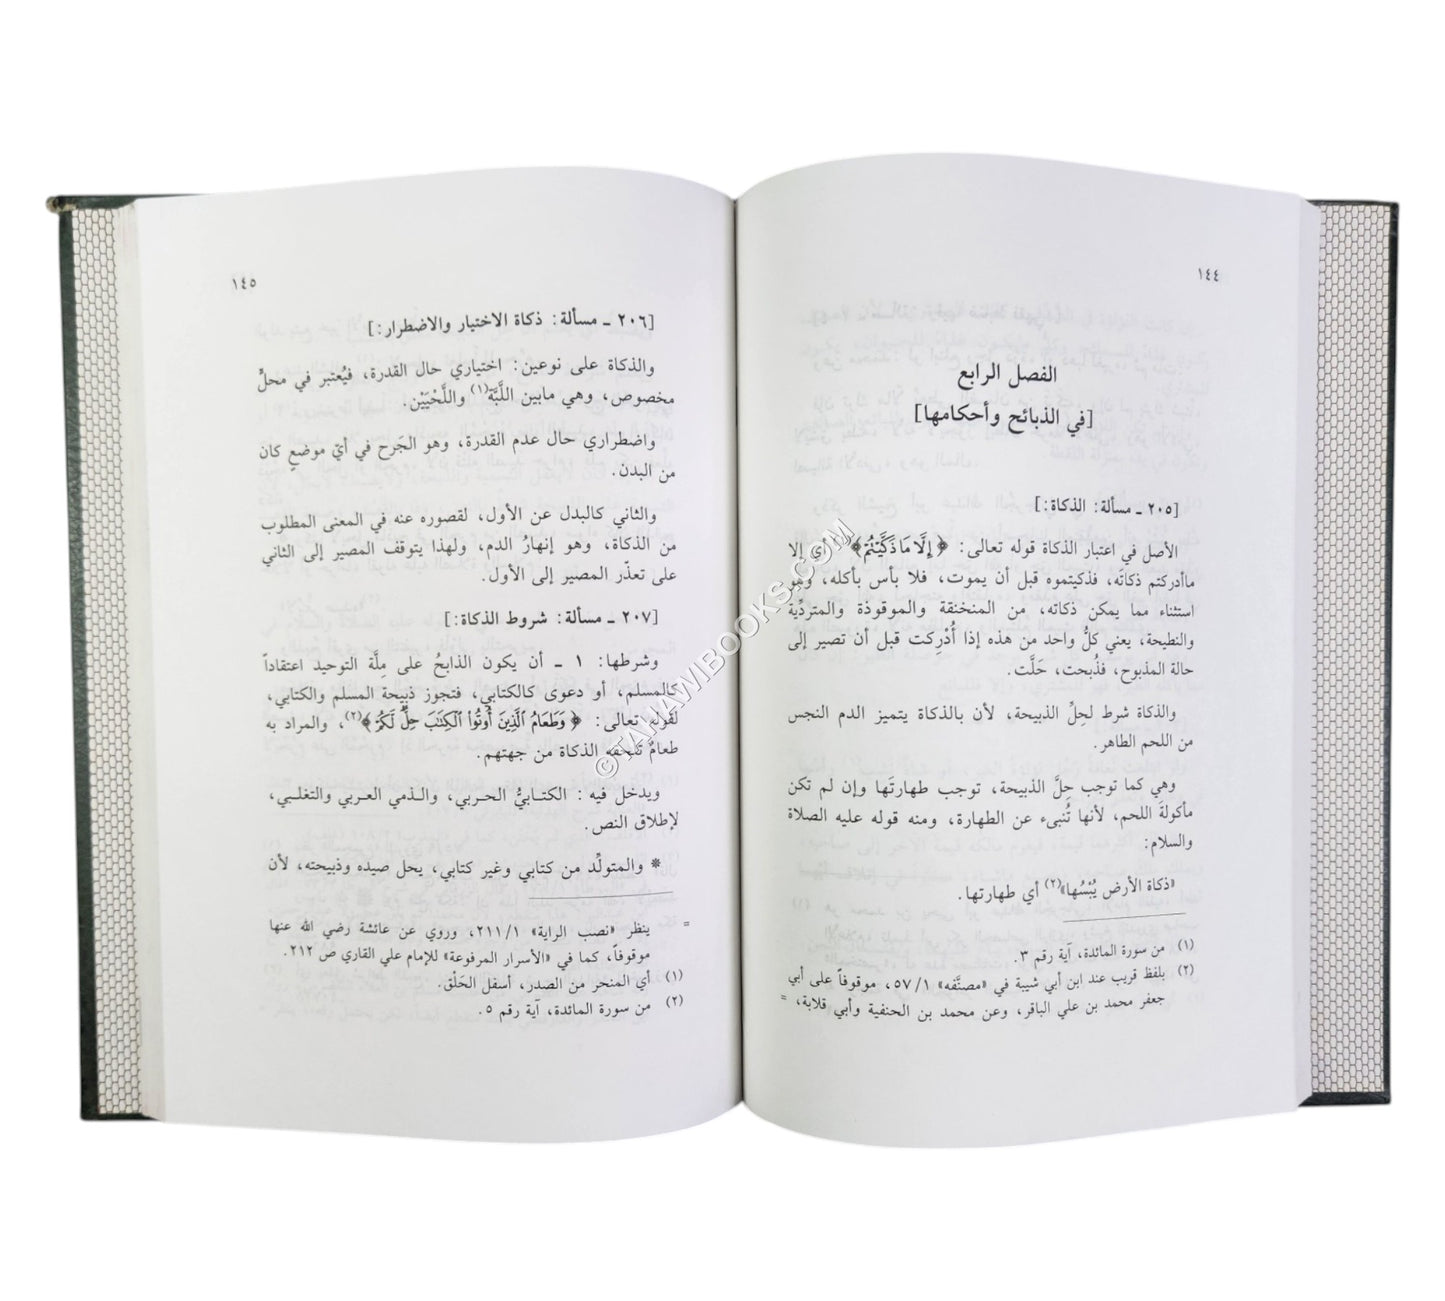 ١٤٤
الفصل الرابع
[في الذبائح وأحكامها]
[٢٠٥ ـ مسألة: الذكاة:]
الأصل في اعتبار الذكاة قوله تعالى: ﴿ إِلَّا مَا ذَكَّيْتُمْ ﴾ أي إلا
ماأدركتم ذكاتَه، فذكيتموه قبل أن يموت، فلا بأس بأكله، وهو
استثناء مما يمكن ذكاته، من المنخنقة والموقوذة والمتردِّية
والنطيحة، يعني كلُّ واحد من هذه إذا أُدْرِكت قبل أن تصير إلى
حالة المذبوح، فذُبحت، حَلَّت.
والذكاة شرط لحِلِّ الذبيحة، لأن بالذكاة يتميز الدم النجس
من اللحم الطاهر.
وهي كما توجب حِلَّ الذبيحة، توجب طهارتَها وإن لم تكن
مأكولةَ اللحم، لأنها تُنبىء عن الطهارة، ومنه قوله عليه الصلاة
والسلام:
«ذكاة الأرض يُبْسُها»(٢) أي طهارتها.
(١) من سورة المائدة، آية رقم ٣.
(٢) بلفظ قريب عند ابن أبي شيبة في «مصنَّفه» ٥٧/١، موقوفاً على أبي
جعفر محمد بن علي الباقر، وعن محمد بن الحنفية وأبي قلابة، =
١٤٥
[٢٠٦ ـ مسألة: ذكاة الاختيار والاضطرار:]
والذكاة على نوعين: اختياري حال القدرة، فيُعتبر في محلٍّ
مخصوص، وهي مابين اللَّبَّة(١) واللَّحْيَيْن.
واضطراري حال عدم القدرة، وهو الجَرح في أيّ موضعٍ كان
من البدن.
والثاني كالبدل عن الأول، لقصوره عنه في المعنى المطلوب
من الذكاة، وهو إنهارُ الدم، ولهذا يتوقف المصير إلى الثاني
على تعذّر المصير إلى الأول.
[٢٠٧ ـ مسألة: شروط الذكاة:]
وشرطها: ١ ـ أن يكون الذابحُ على مِلَّة التوحيد اعتقاداً
كالمسلم، أو دعوى كالكتابي، فتجوز ذبيحة المسلم والكتابي،
لقوله تعالى: ﴿ وَطَعَامُ ٱلَّذِينَ أُوتُواْ ٱلْكِتَٰبَ حِلٌّ لَّكُمْ ﴾(٢)، والمراد به
طعامٌ تلحقه الذكاة من جهتهم.
ويدخل فيه: الكتابيُّ الحربي، والذمي العربي والتغلبي،
لإطلاق النص.
* والمتولِّد من كتابي وغير كتابي، يحل صيده وذبيحته، لأن
= ينظر «نصب الراية» ٢١١/١، وروي عن عائشة رضي الله عنها
موقوفاً، كما في «الأسرار المرفوعة» للإمام علي القاري ص ٢١٢.
(١) أي المنحر من الصدر، أسفل الحَلْق.
(٢) من سورة المائدة، آية رقم ٥.
© TAHAWIBOOKS.COM